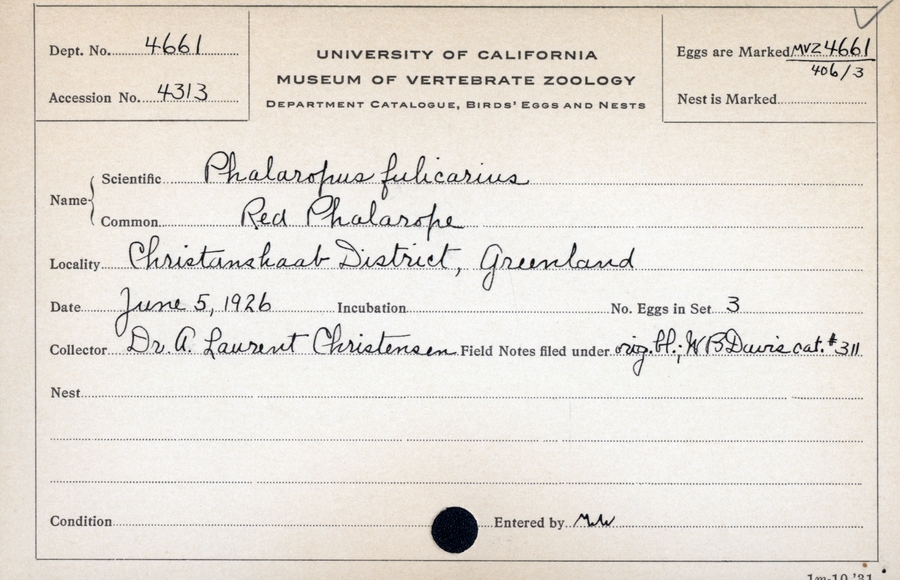 Dept. No. 4661
Accession No. 4313
UNIVERSITY OF CALIFORNIA
MUSEUM OF VERTEBRATE ZOOLOGY
DEPARTMENT CATALOGUE, BIRDS' EGGS AND NESTS
Eggs are Marked MVZ 4661
406/3
Nest is Marked
Name
Scientific Phalaropus fulicarius
Common Red Phalarope
Locality Christanshaab District, Greenland
Date June 5, 1926 Incubation No. Eggs in Set 3
Collector Dr. A. Laurent Christensen Field Notes filed under orig. bl.; WBDavis cat. #311
Nest
Condition Entered by
1m-10,'31